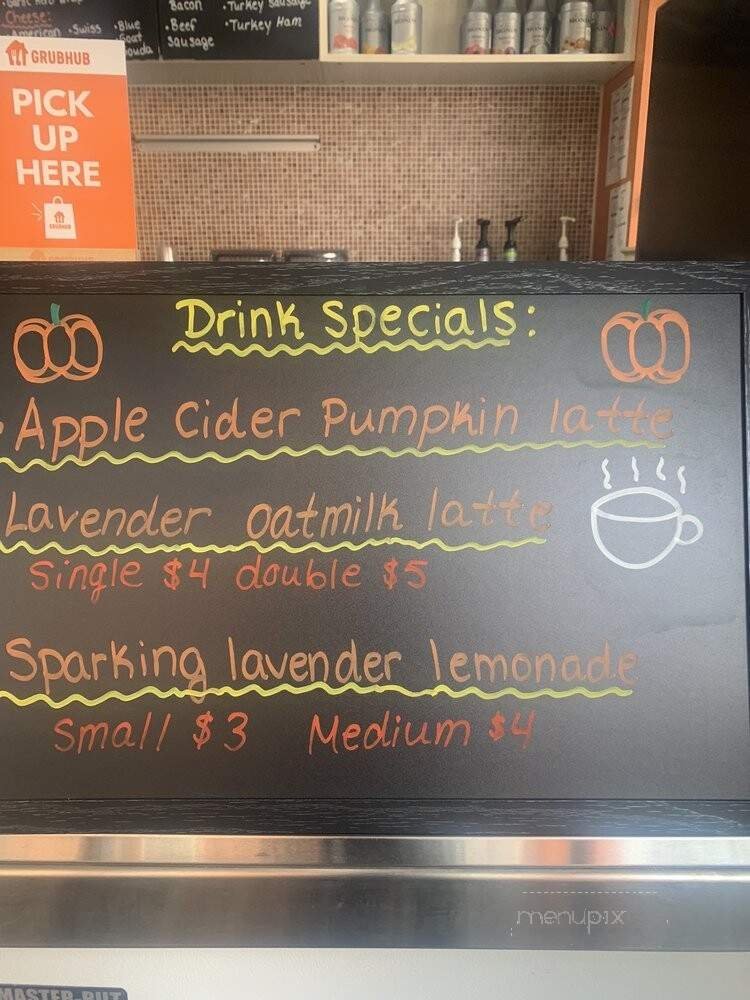 Cheese:
American •Swiss
•Blue
•Goat
Gouda
Bacon
•Beef
sausage
•Turkey Sausage
•Turkey Ham
GRUBHUB
PICK
UP
HERE
GRUBHUB
Drink Specials:
Apple Cider Pumpkin latte
Lavender oatmilk latte
Single $4 double $5
Sparking lavender lemonade
Small $3 Medium $4
menupix
MASTER-BILT